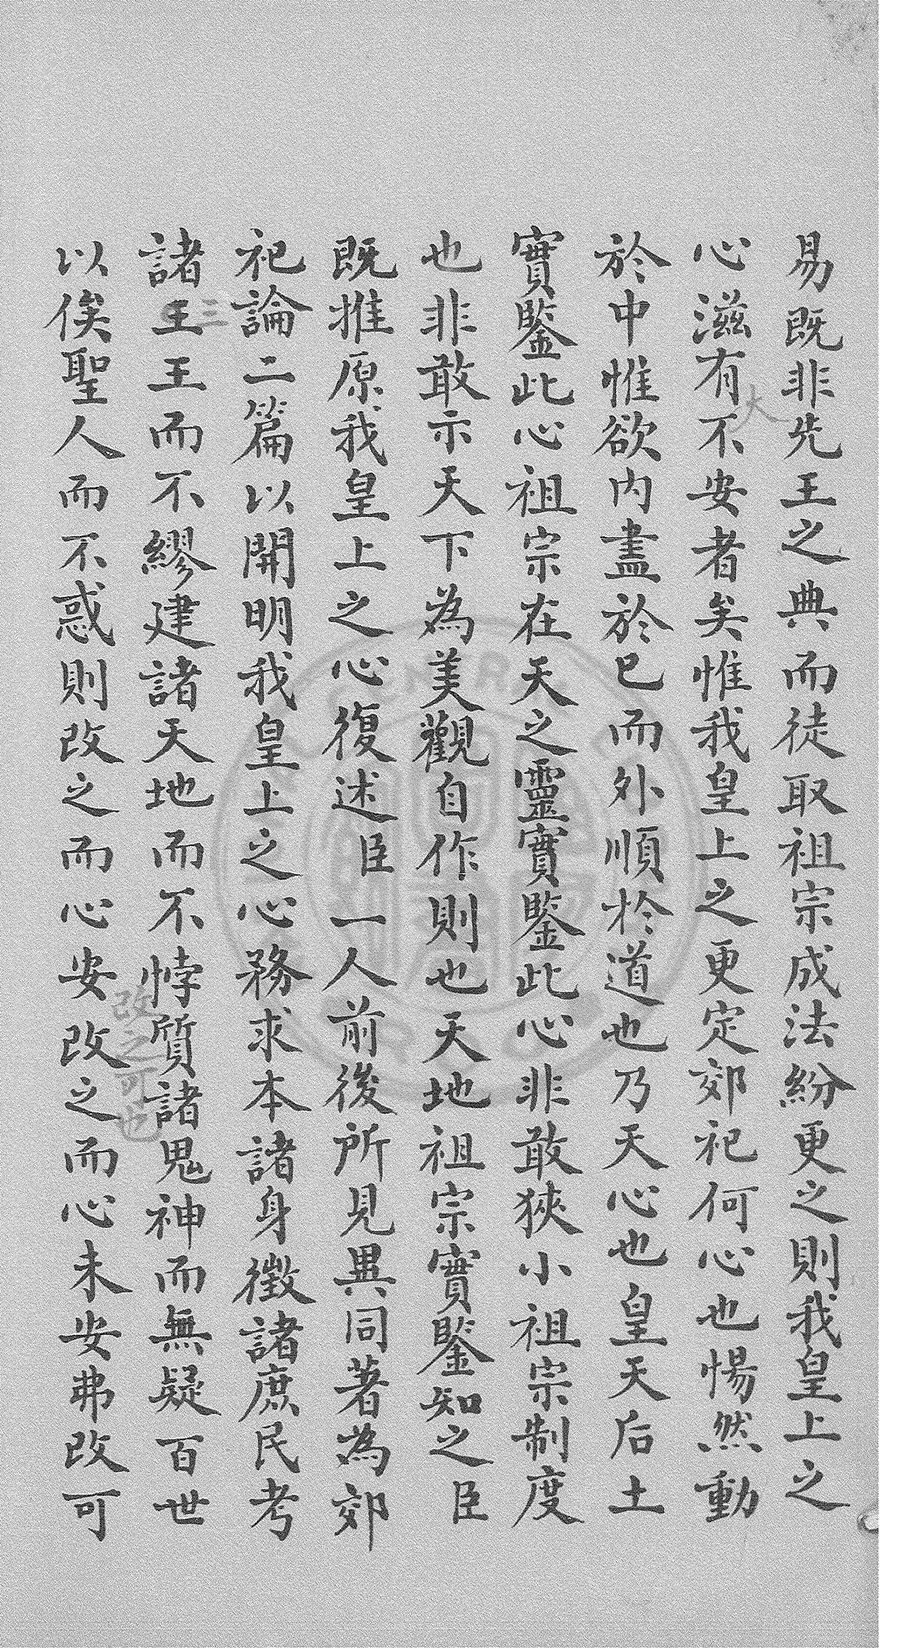 易既非先王之典而徒取祖宗成法紛更之則我皇上之
心滋有不安者矣惟我皇上之更定郊祀何心也惕然動
大
於中惟欲内盡於已而外順於道也乃天心也皇天后土
實鑒此心祖宗在天之靈實鑒此心非敢狹小祖宗制度
也非敢示天下為美觀自作則也天地祖宗實鑒知之臣
既推原我皇上之心復述臣一人前後所見異同著為郊
祀論二篇以開明我皇上之心務求本諸身徵諸庶民考
三
諸王王而不繆建諸天地而不悖質諸鬼神而無疑百世
改之可也
以俟聖人而不惑則改之而心安改之而心未安弗改可
CENTRAL